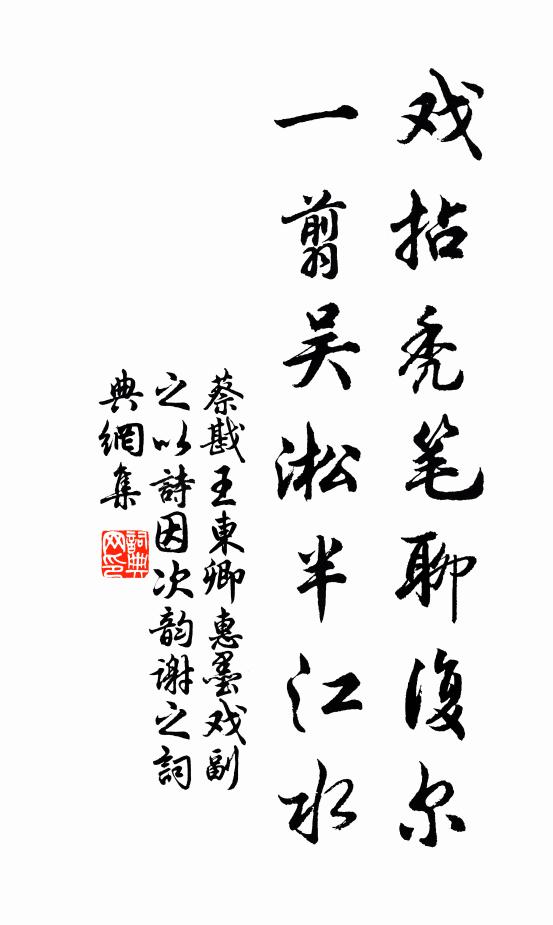 戏拈秃笔聊復尔
一剪吴淞半江水
蔡戡王東卿惠墨戏副
之以詩因次韵谢之詞
典網集
詞典网印